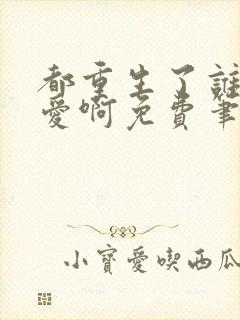 都重生了誰
愛啊免費筆
小寶愛喫西瓜